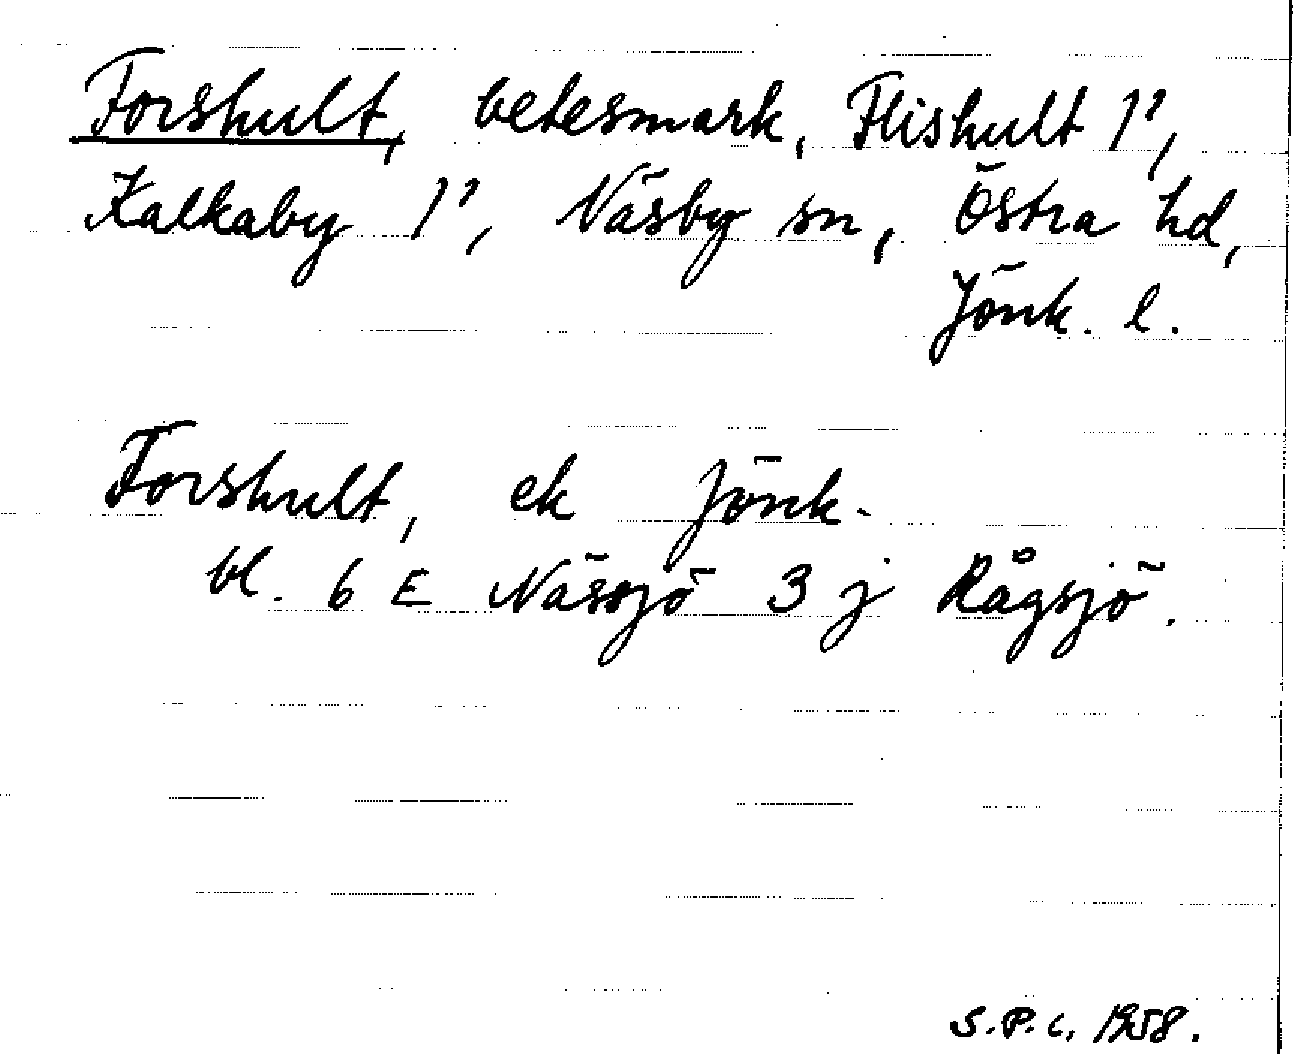 Forshult, betesmark, Flishult 1²,
Kalkaby 1², Näsby sn, Östra hd,
Jönk. l.
Forshult, ek Jönk.
bl. 6 E Nässjö 3 j Rågsjö.
S.P.c. 1958.